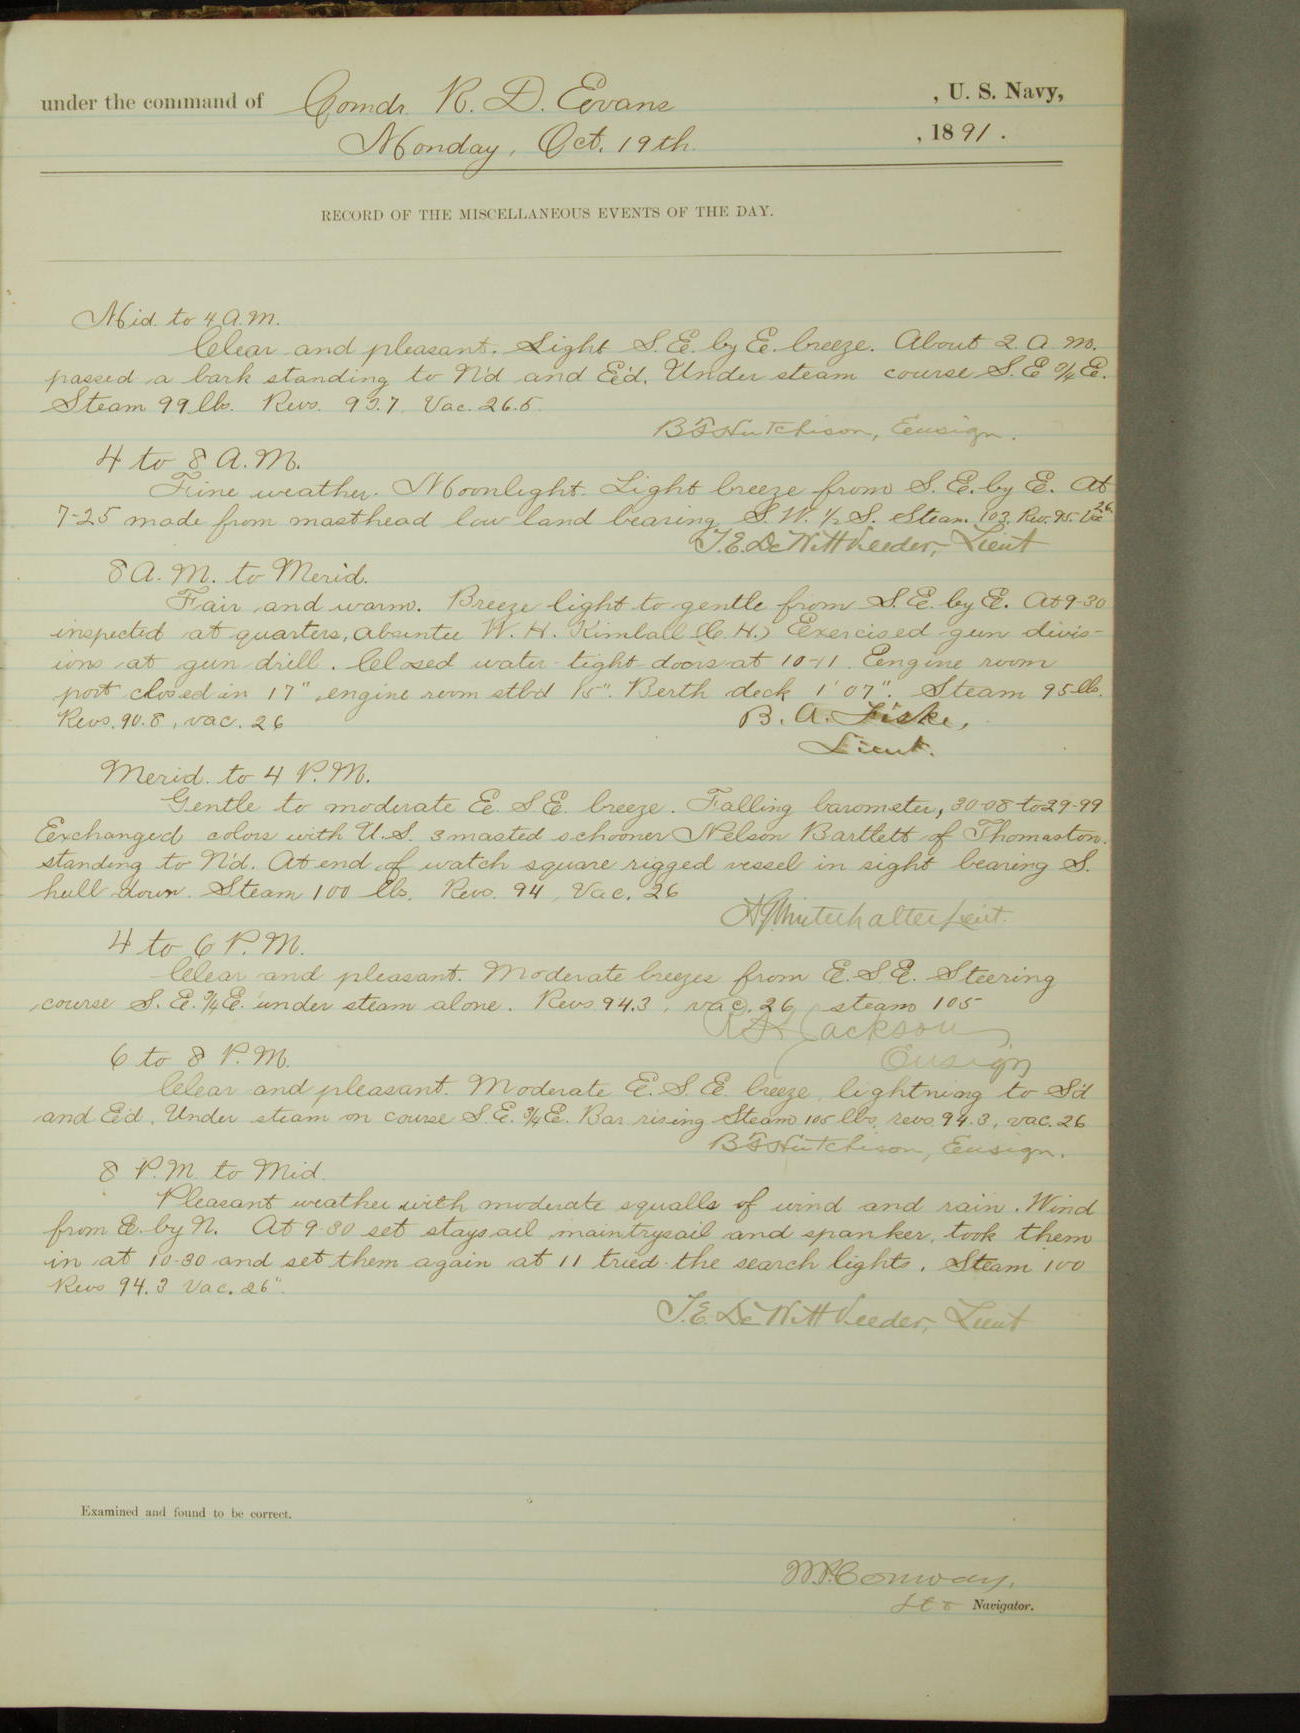 under the command of Comdr. R. D. Evans , U. S. Navy,
Monday, Oct. 19th. , 1891.
RECORD OF THE MISCELLANEOUS EVENTS OF THE DAY.
Mid. to 4 A.M.
Clear and pleasant. Light S.E. by E. breeze. About 2 A m.
passed a bark standing to N'd and E'd. Under steam course S.E ¾ E.
Steam 99 lbs. Revs. 93.7. Vac. 26.5
B F Hutchison, Ensign.
4 to 8 A.M.
Fine weather. Moonlight. Light breeze from S.E. by E. At
7-25 made from masthead low land bearing S.W. ½ S. Steam 103. Rev. 95. Vac 26.
T.E. DeWitt Veeder, Lieut
8 A.M. to Merid.
Fair and warm. Breeze light to gentle from S.E. by E. At 9-30
inspected at quarters, absentee W. H. Kimball (C. H.) Exercised gun divis-
ions at gun drill. Closed water-tight doors at 10-11. Engine room
port closed in 17", engine room stbd 15". Berth deck 1' 07". Steam 95 lb.
Revs. 90.8, vac. 26
B. A. Fiske,
Lieut.
Merid. to 4 P.M.
Gentle to moderate E. S.E. breeze. Falling barometer, 30-08 to 29-99
Exchanged colors with U.S. 3 masted schooner Nelson Bartlett of Thomaston.
standing to N'd. At end of watch square rigged vessel in sight bearing S.
hull down. Steam 100 lbs. Revs. 94, Vac. 26
A G Winterhalter Lieut.
4 to 6 P.M.
Clear and pleasant. Moderate breezes from E. S.E. Steering
course S. E. ¾ E. under steam alone. Revs 94.3, vac. 26, steam 105
Jackson
Ensign
6 to 8 P.M.
Clear and pleasant. Moderate E. S. E. breeze, lightning to S'd
and E'd. Under steam on course S.E. ¾ E. Bar rising Steam 105 lbs, revs 94.3, vac. 26
B F Hutchison, Ensign.
8 P.M. to Mid.
Pleasant weather with moderate squalls of wind and rain. Wind
from E. by N. At 9-30 set staysail maintrysail and spanker, took them
in at 10-30 and set them again at 11 tried the search lights. Steam 100
Revs 94.3 Vac. 26".
T.E. DeWitt Veeder, Lieut
Examined and found to be correct.
W.P. Conway,
Lt & Navigator.